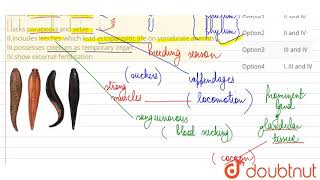 phylum
I.lacks parapodia and setae
II.includes leeches which lead ectoparasitic life on vertebrate animals
III.possesses clitellum as temporary organ
IV.show external fertilisation
Option2 II and IV
Option3 III and IV
Option4 I, III and IV
breeding season
(suckers) appendages
strong muscles (locomotion)
prominent band of
glandular tissue
sanguivorous
(blood sucking)
(cocoon)
doubtnut